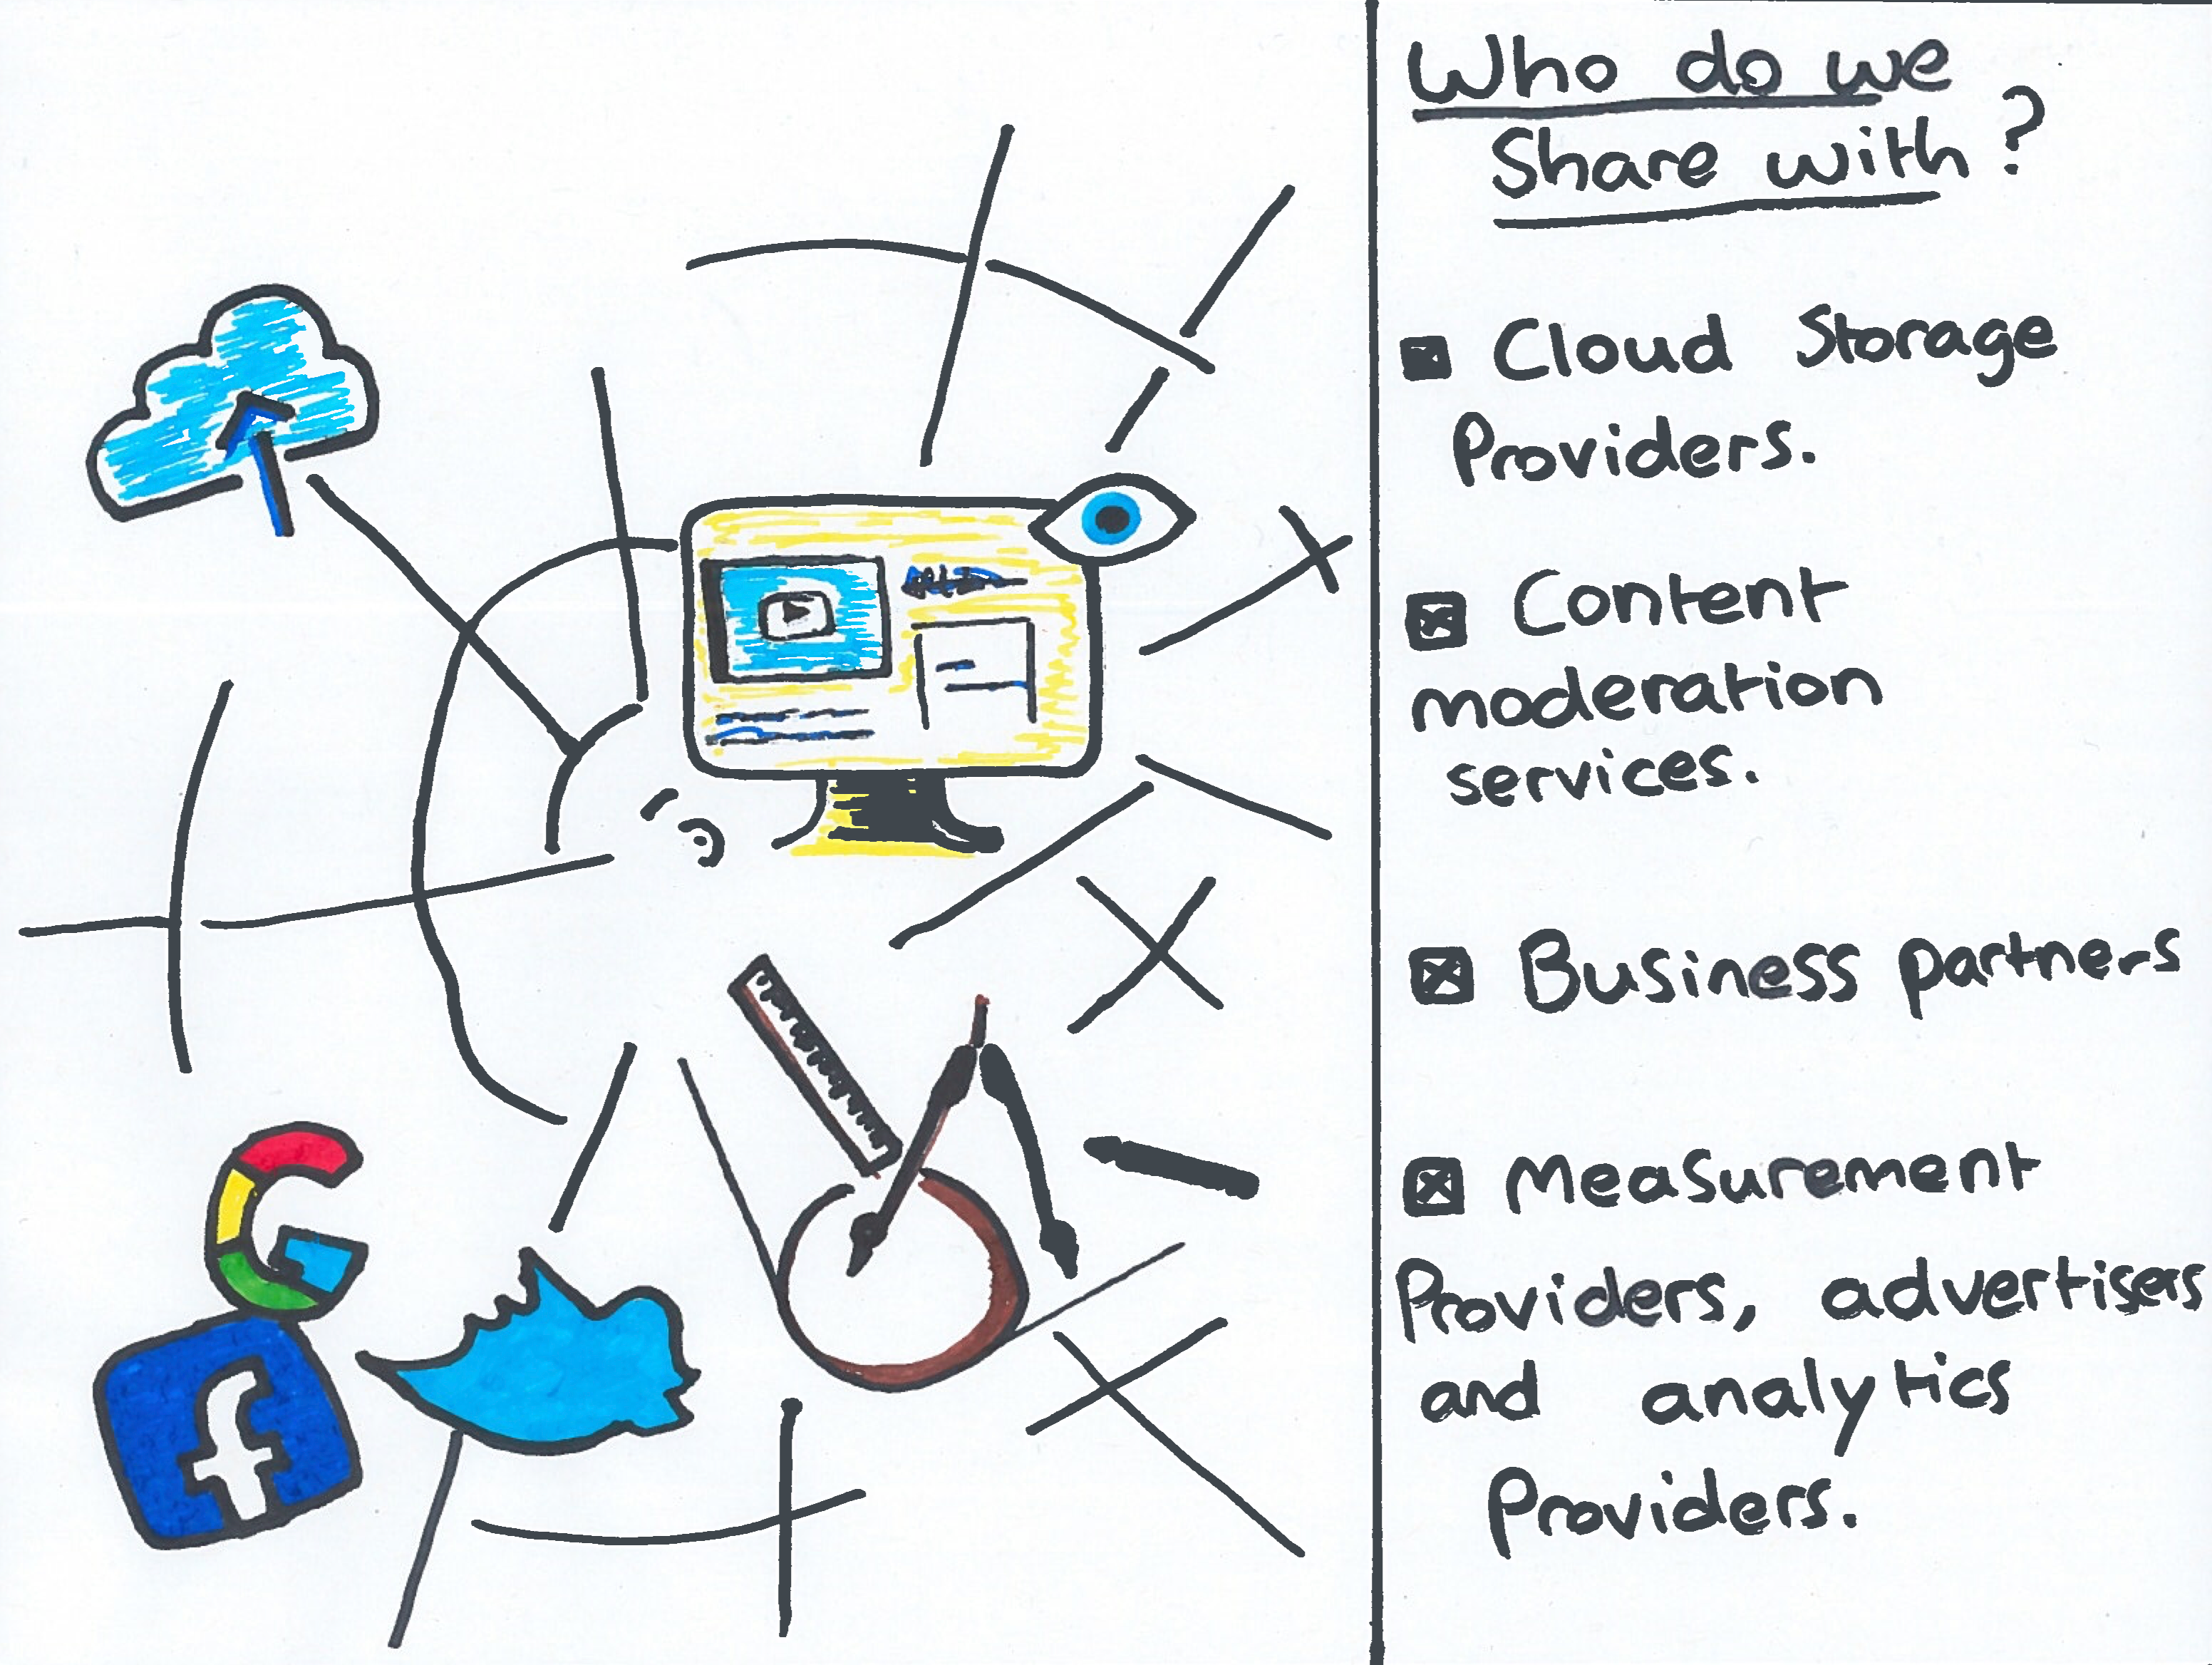 Who do we
Share with?
Cloud Storage
Providers.
Content
moderation
services.
Business partners
Measurement
Providers, advertisers
and analytics
Providers.